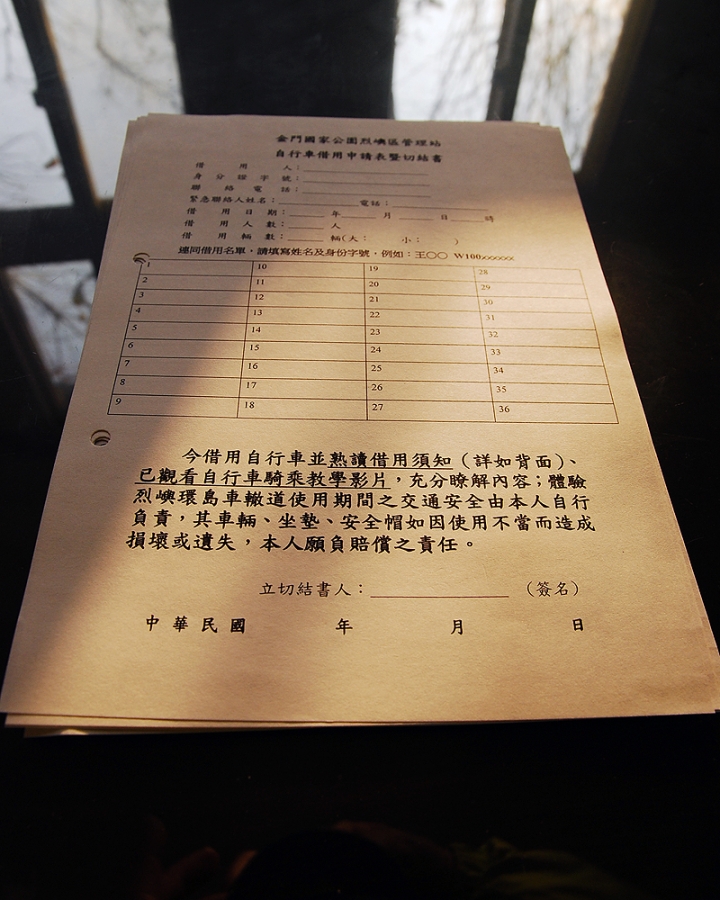 金門國家公園烈嶼區管理站
自行車借用申請表暨切結書
借用人：
身分證字號：
聯絡電話：
緊急聯絡人姓名： 電話：
借用日期： 年 月 日 時
借用人數： 人
借用輛數： 輛(大： 小： )
連同借用名單，請填寫姓名及身份字號，例如：王○○ W100xxxxxx
1 10 19 28
2 11 20 29
3 12 21 30
4 13 22 31
5 14 23 32
6 15 24 33
7 16 25 34
8 17 26 35
9 18 27 36
今借用自行車並熟讀借用須知（詳如背面）、
已觀看自行車騎乘教學影片，充分瞭解內容；體驗
烈嶼環島車轍道使用期間之交通安全由本人自行
負責，其車輛、坐墊、安全帽如因使用不當而造成
損壞或遺失，本人願負賠償之責任。
立切結書人： （簽名）
中華民國 年 月 日